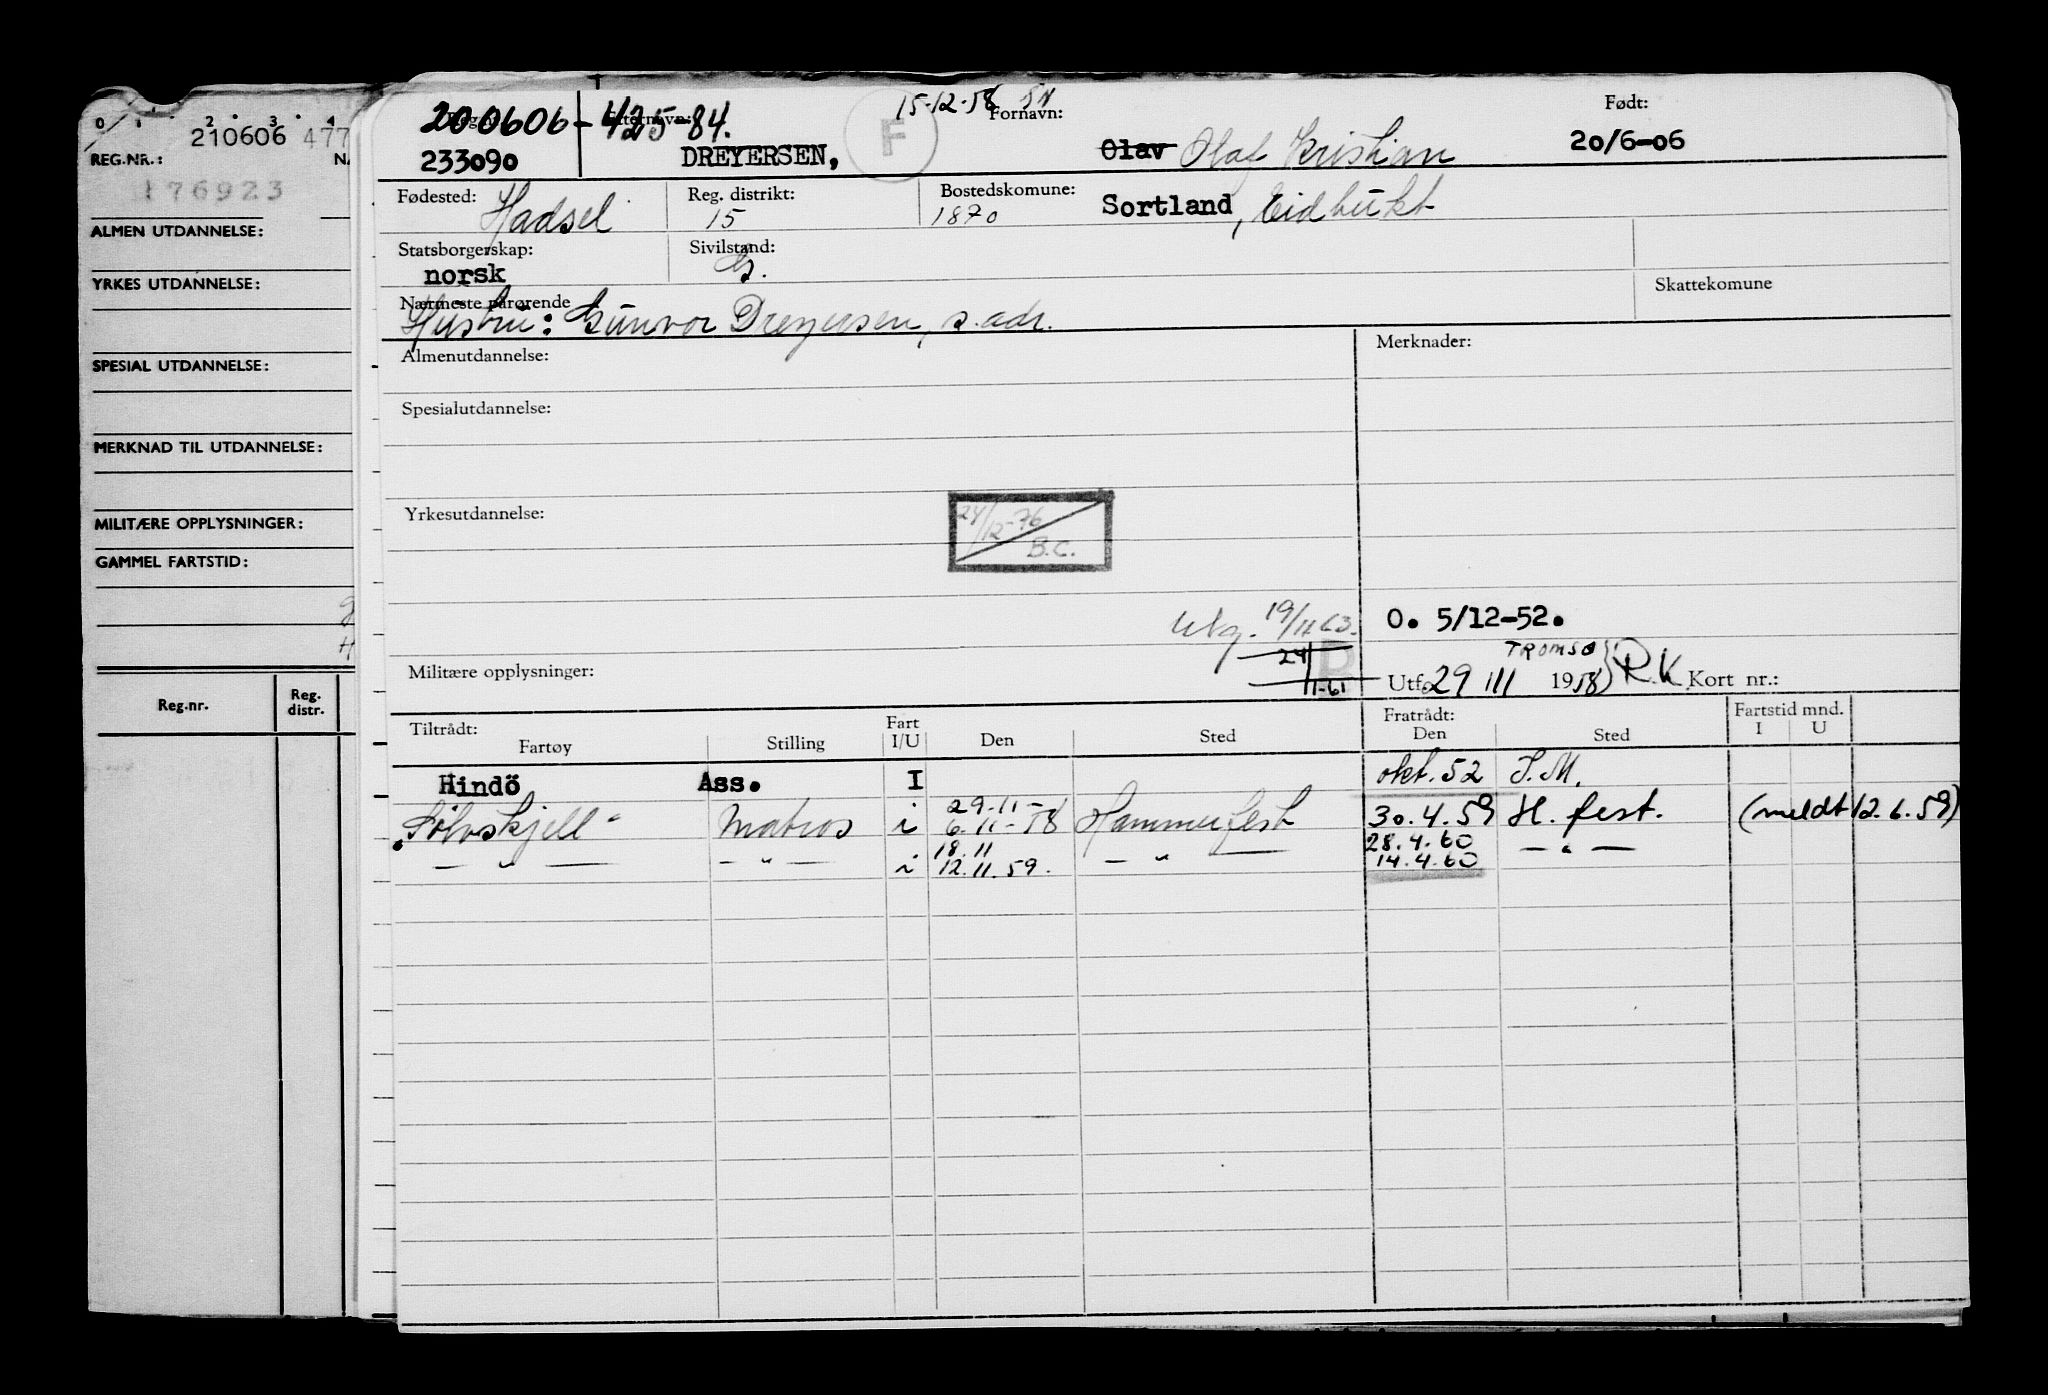 0 1 2 3 4
210606 477
REG.NR.:
176923
ALMEN UTDANNELSE:
YRKES UTDANNELSE:
SPESIAL UTDANNELSE:
MERKNAD TIL UTDANNELSE:
MILITÆRE OPPLYSNINGER:
GAMMEL FARTSTID:
Reg.nr. Reg. distr.
200606-425-84. 15-12-58 SN Fornavn: Født:
233090 DREYERSEN, F Olav Olaf Kristian 20/6-06
Fødested: Hadsel Reg. distrikt: 15 Bostedskomune: 1870 Sortland, Eidbukt
Statsborgerskap: norsk Sivilstand: G.
Nærmeste pårørende Skattekomune
Hustru: Gunvor Dreyersen, s. adr.
Almenutdannelse: Merknader:
Spesialutdannelse:
Yrkesutdannelse: 24/12-76 B.C.
Utg. 19/11 63. O. 5/12-52.
24/1-61 TROMSØ
Militære opplysninger: Utf. 29/11 1958 R.K. Kort nr.:
Tiltrådt: Fart Fratrådt: Fartstid mnd.
Fartøy Stilling I/U Den Sted Den Sted I U
Hindö Ass. I okt. 52 S.M.
"Sølvskjell" Matros i 29.11- 6.11-58 Hammerfest 30.4.59 H. fest. (meldt 12.6.59)
— " — — " — i 18.11 12.11.59. — " — 28.4.60 14.4.60 — " —